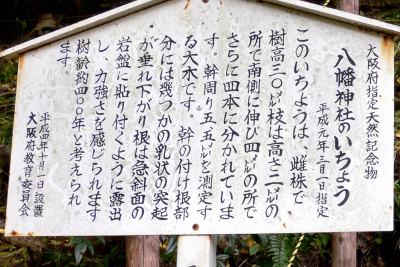 大阪府指定天然記念物
八幡神社のいちょう
平成元年三月一日指定
このいちょうは、雌株で
樹高三〇㍍枝は高さ二㍍の
所で南側に伸び四㍍の所で
さらに四本に分かれていま
す。幹周り五・五㍍を測定す
る大木です。幹の付け根部
分には幾つかの乳状の突起
が垂れ下がり根は急斜面の
岩盤に貼り付くように露出
し、力強さを感じられます
樹齢約四〇〇年と考えられ
ます。
平成四年十月一日設置
大阪府教育委員会